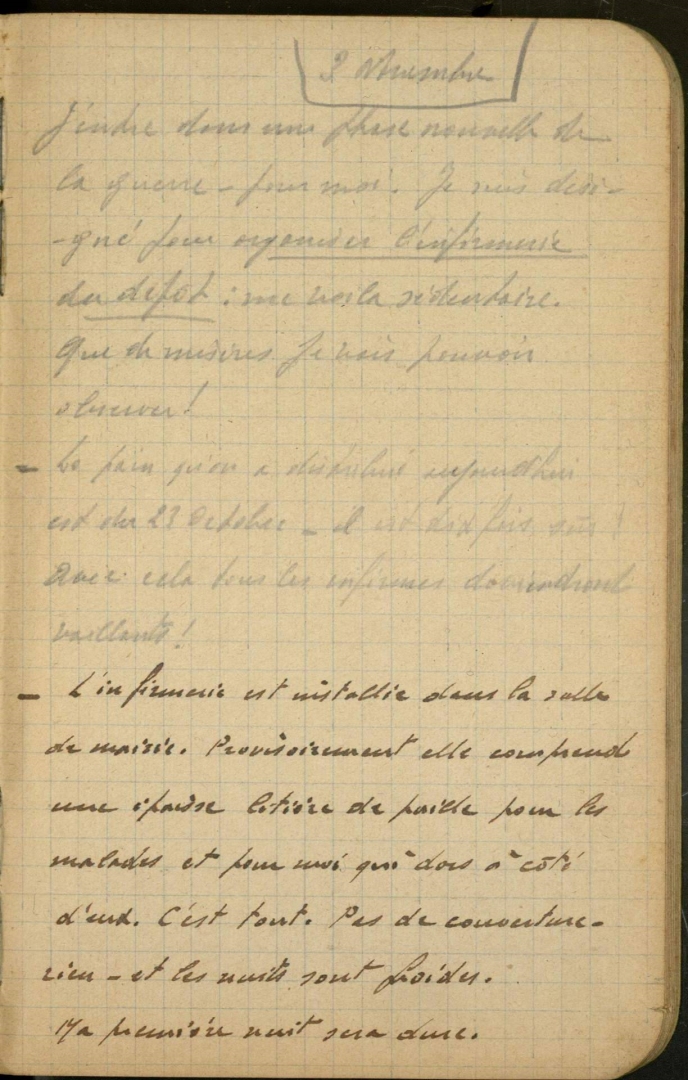 2 Novembre
J'entre dans une phase nouvelle de
la guerre – pour moi. Je suis dési-
-gné pour organiser l'infirmerie
du dépôt : me voilà sédentaire.
Que de misères je vais pouvoir
observer !
– Le pain qu'on a distribué aujourd'hui
est du 23 Octobre – il est dix fois !
Avec cela tous les infirmes deviendront
vaillants !
– L'infirmerie est installée dans la salle
de mairie. Provisoirement elle comprend
une épaisse litière de paille pour les
malades et pour moi qui dors à côté
d'eux. C'est tout. Pas de couverture –
rien – et les nuits sont froides.
Ma première nuit sera dure.